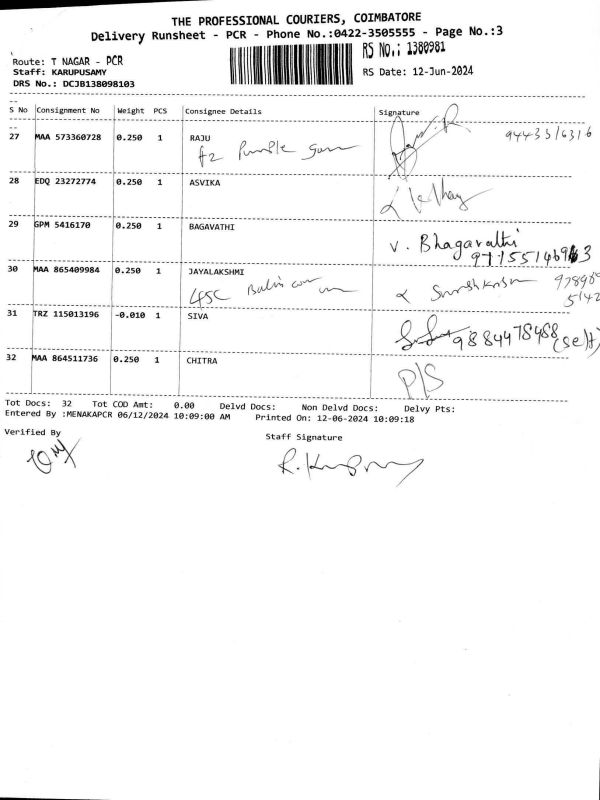 THE PROFESSIONAL COURIERS, COIMBATORE
Delivery Runsheet - PCR - Phone No.:0422-3505555 - Page No.:3
Route: T NAGAR - PCR
Staff: KARUPUSAMY
DRS No.: DCJB138098103
RS No.: 1380981
RS Date: 12-Jun-2024
S No Consignment No Weight PCS Consignee Details Signature
27 MAA 573360728 0.250 1 RAJU
28 EDQ 23272774 0.250 1 ASVIKA
29 GPM 5416170 0.250 1 BAGAVATHI
V. Bhagavathi
30 MAA 865409984 0.250 1 JAYALAKSHMI
45C
31 TRZ 115013196 -0.010 1 SIVA
9884478488 (self)
32 MAA 864511736 0.250 1 CHITRA
P/S
Tot Docs: 32 Tot COD Amt: 0.00 Delvd Docs: Non Delvd Docs: Delvy Pts:
Entered By :MENAKAPCR 06/12/2024 10:09:00 AM Printed On: 12-06-2024 10:09:18
Verified By
Staff Signature